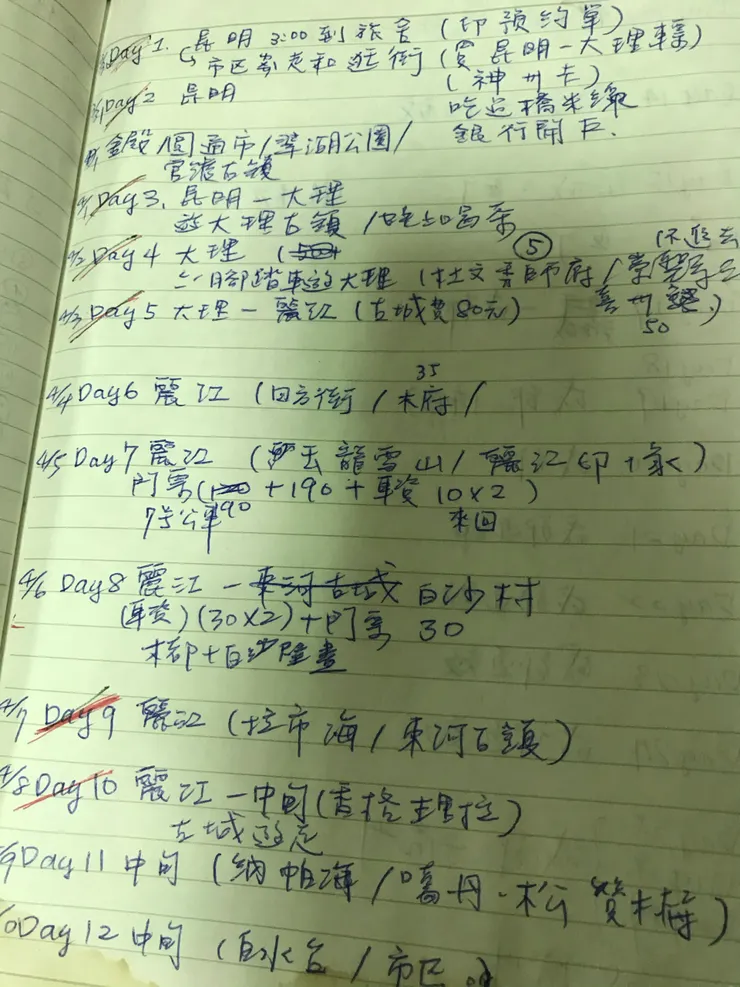 Day 1. 昆明 3:00到旅舍 (印預約單)
市区 走和逛街 (買昆明一大理車票)
(神州卡)
Day 2 昆明 吃過橋米線
銀行開戶.
金殿/圓通市/翠湖公園/
官渡古鎮
Day 3. 昆明一大理
遊大理古鎮 /
4/2 Day 4 大理 (
腳踏車遊大理 (杜文秀帥府/崇聖寺
⑤
4/3 Day 5 大理一麗江 (古城費80元)
50
4/4 Day 6 麗江 (四方街/木府/
35
4/5 Day 7 麗江 (玉龍雪山/麗江印象)
門票( +190+車資 10×2)
90
7号公車 來回
4/6 Day 8 麗江 一束河古城 白沙村
(車資)(30×2)+門票 30
木都+白沙壁畫
4/7 Day 9 麗江 (拉市海/束河古鎮)
4/8 Day 10 麗江一中甸(香格里拉)
古城
9 Day 11 中甸 (納帕海/噶丹·松贊林寺)
0 Day 12 中甸 (白水台/市区